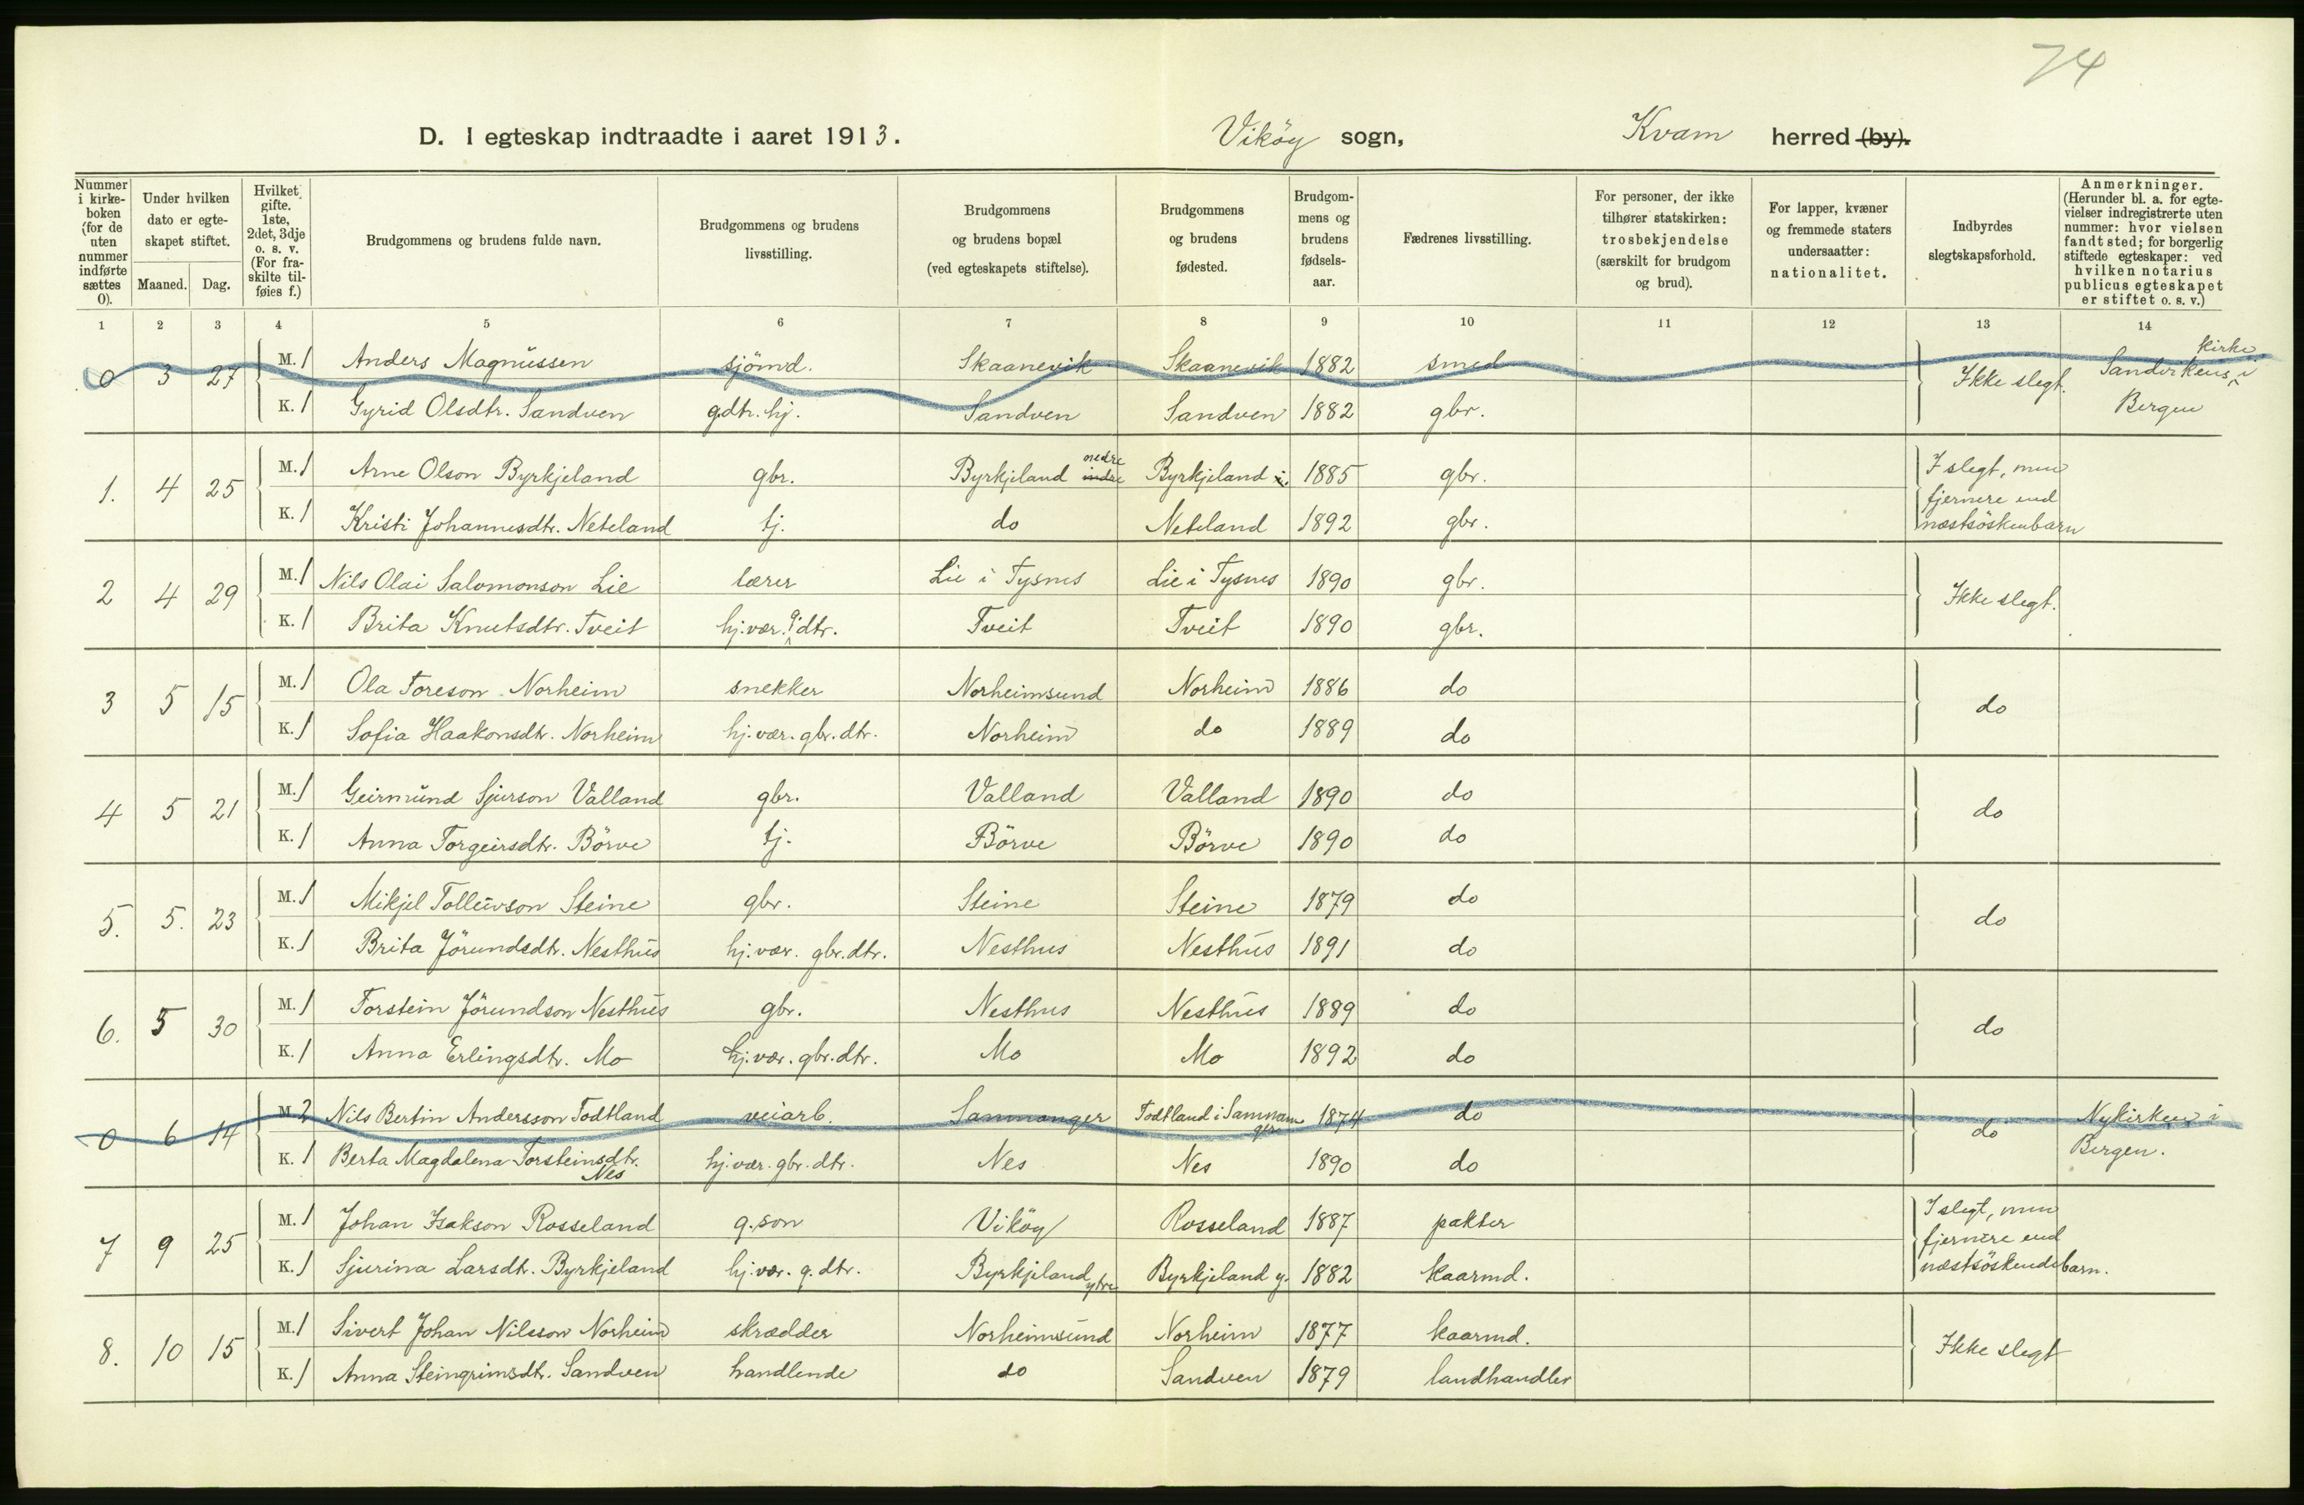 74
D. I egteskap indtraadte i aaret 1913. Viköy sogn, Kvam herred (by).
Nummer i kirkeboken (for de uten nummer indførte sættes 0). | Under hvilken dato er egteskapet stiftet. Maaned. Dag. | Hvilket gifte. 1ste, 2det, 3dje o. s. v. (For fraskilte tilføies f.) | Brudgommens og brudens fulde navn. | Brudgommens og brudens livsstilling. | Brudgommens og brudens bopæl (ved egteskapets stiftelse). | Brudgommens og brudens fødested. | Brudgommens og brudens fødselsaar. | Fædrenes livsstilling. | For personer, der ikke tilhører statskirken: trosbekjendelse (særskilt for brudgom og brud). | For lapper, kvæner og fremmede staters undersaatter: nationalitet. | Indbyrdes slegtskapsforhold. | Anmerkninger. (Herunder bl. a. for egtevielser indregistrerte uten nummer: hvor vielsen fandt sted; for borgerlig stiftede egteskaper: ved hvilken notarius publicus egteskapet er stiftet o. s. v.)
1 2 3 4 5 6 7 8 9 10 11 12 13 14
0 3 27 M. 1 Anders Magnussen sjömd. Skaanevik Skaanevik 1882 smed Ikke slegt. Sandvikens kirke i Bergen
K. 1 Gyrid Olsdtr. Sandven g.dtr. hj. Sandven Sandven 1882 gbr.
1. 4 25 M. 1 Arne Olson Byrkjeland gbr. Byrkjeland indre nedre Byrkjeland i. 1885 gbr. I slegt, men fjernere end næstsöskenbarn
K. 1 Kristi Johannesdtr. Neteland tj. do Neteland 1892 gbr.
2 4 29 M. 1 Nils Olai Salomonson Lie lærer Lie i Tysnes Lie i Tysnes 1890 gbr. Ikke slegt.
K. 1 Brita Knutsdtr. Tveit hj. vær. g. dtr. Tveit Tveit 1890 gbr.
3 5 15 M. 1 Ola Toreson Norheim snekker Norheimsund Norheim 1886 do do
K. 1 Sofia Haakonsdtr. Norheim hj. vær. gbr. dtr. Norheim do 1889 do
4 5 21 M. 1 Geirmund Sjurson Valland gbr. Valland Valland 1890 do do
K. 1 Anna Torgeirsdtr. Börve tj. Börve Börve 1890 do
5. 5. 23 M. 1 Mikjel Tolleivson Steine gbr. Steine Steine 1879 do do
K. 1 Brita Jörundsdtr. Nesthus hj. vær. gbr. dtr. Nesthus Nesthus 1891 do
6. 5 30 M. 1 Torstein Jörundson Nesthus gbr. Nesthus Nesthus 1889 do do
K. 1 Anna Erlingsdtr. Mo hj. vær. gbr. dtr. Mo Mo 1892 do
0 6 14 M. 2 Nils Bertin Andersson Todtland veiarb. Samnanger Todtland i Samnanger 1874 do do Nykirken i Bergen.
K. 1 Berta Magdalena Torsteinsdtr. Nes hj. vær. gbr. dtr. Nes Nes 1890 do
7 9 25 M. 1 Johan Isakson Rosseland g. son Viköy Rosseland 1887 pakter I slegt, men fjernere end næstsöskendebarn.
K. 1 Sjurina Larsdtr. Byrkjeland hj. vær. g. dtr. Byrkjeland ytre Byrkjeland y. 1882 kaarmd.
8. 10 15 M. 1 Sivert Johan Nilsson Norheim skrædder Norheimsund Norheim 1877 kaarmd. Ikke slegt
K. 1 Anna Steingrimsdtr. Sandven handlende do Sandven 1879 landhandler